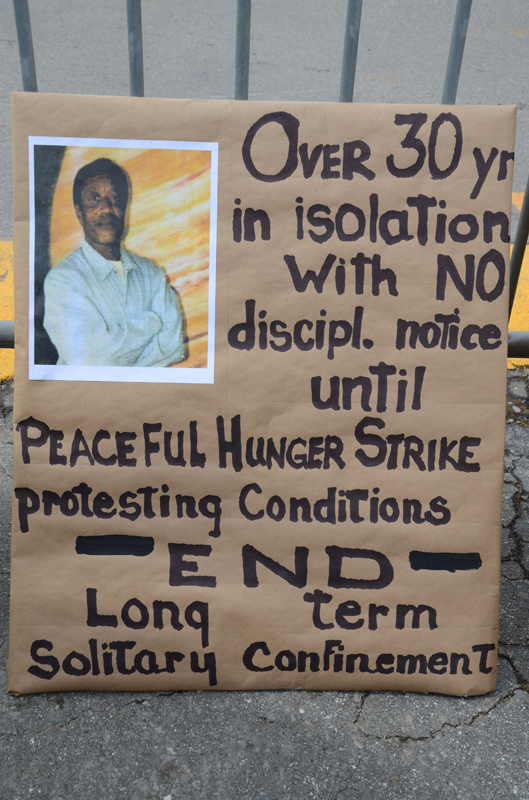 OVER 30 yr
in isolation
With NO
discipl. notice
until
PEACEFUL HUNGER STRIKE
protesting Conditions
END
Long term
Solitary Confinement